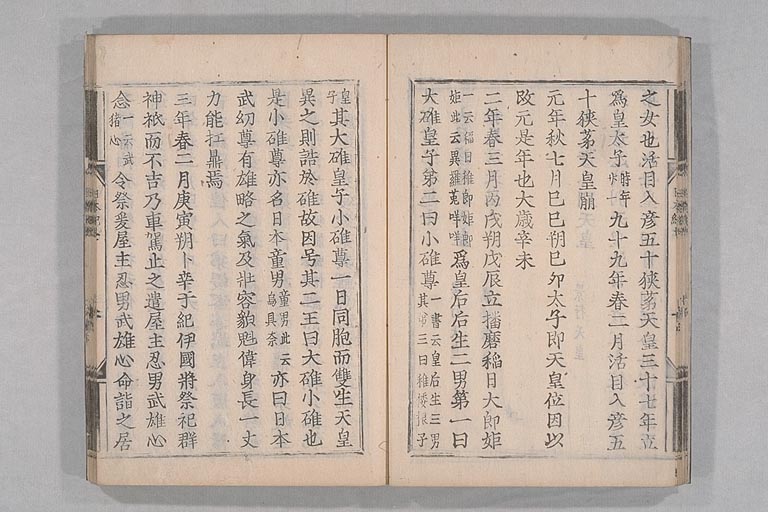 之女也活目入彦五十狹茅天皇三十七年立
爲皇太子時年廿一九十九年春二月活目入彦五
十狹茅天皇崩
元年秋七月己巳朔己卯太子即天皇位因以
改元是年也大歲辛未
二年春三月丙戌朔戊辰立播磨稻日大郎姫
一云稻日稚郎姫郎姫此云異羅菟咩爲皇后后生二男第一曰
大碓皇子第二曰小碓尊一書云皇后生三男其第三曰稚倭根子
皇子其大碓皇子小碓尊一日同胞而雙生天皇
異之則誥於碓故因号其二王曰大碓小碓也
是小碓尊亦名日本童男童男此云烏具奈亦曰日本
武幼尊有雄略之氣及壯容貌魁偉身長一丈
力能扛鼎焉
三年春二月庚寅朔卜幸于紀伊國將祭祀群
神祇而不吉乃車駕止之遣屋主忍男武雄心
命一云武猪心令祭爰屋主忍男武雄心命詣之居